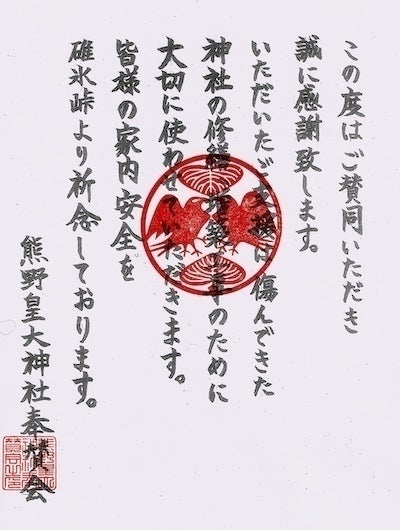 この度はご賛同いただき
誠に感謝致します。
いただいたご支援は傷んできた
神社の修繕 築工事のために
大切に使わせていただきます。
皆様の家内安全を
碓氷峠より祈念しております。
熊野皇大神社奉賛会